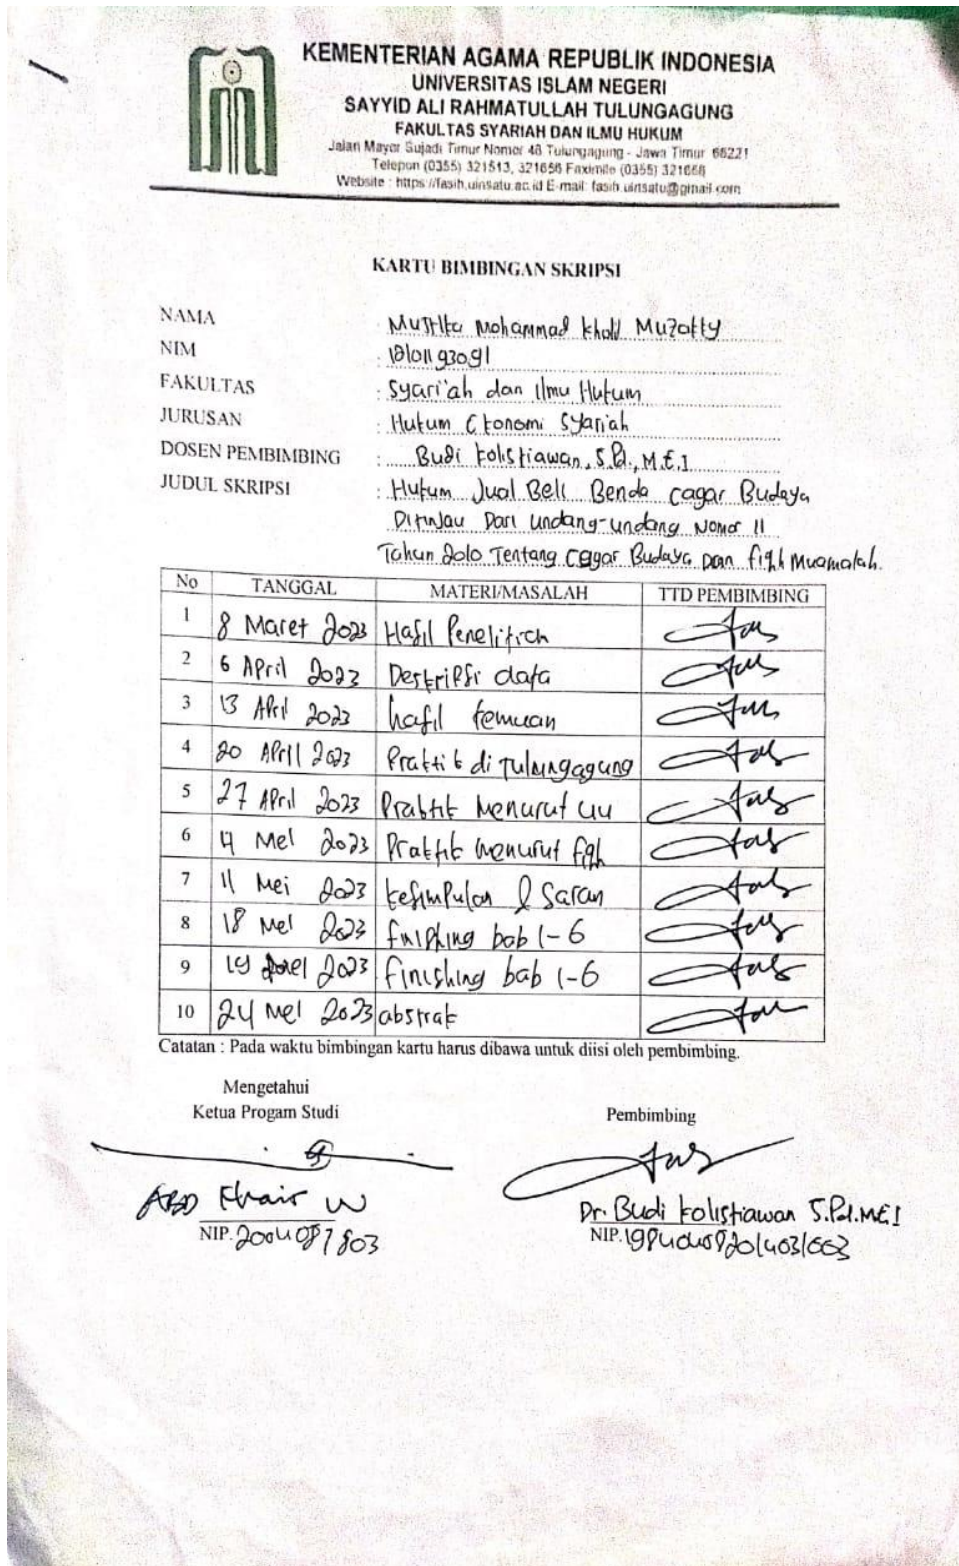 KEMENTERIAN AGAMA REPUBLIK INDONESIA
UNIVERSITAS ISLAM NEGERI
SAYYID ALI RAHMATULLAH TULUNGAGUNG
FAKULTAS SYARIAH DAN ILMU HUKUM
Jalan Mayor Sujadi Timur Nomor 46 Tulungagung - Jawa Timur 66221
Telepon (0355) 321513, 321656 Faximile (0355) 321656
Website : https://fasih.uinsatu.ac.id E-mail: fasih.uinsatu@gmail.com
KARTU BIMBINGAN SKRIPSI
NAMA : Mohammad
NIM :
FAKULTAS : Syari'ah dan Ilmu Hukum
JURUSAN : Hukum Ekonomi Syariah
DOSEN PEMBIMBING : Budi Kolistiawan, S.Pd., M.E.I
JUDUL SKRIPSI : Hukum Jual Beli Benda cagar Budaya
Ditinjau Dari undang-undang Nomor 11
Tahun 2010 Tentang cagar Budaya Dan fiqh Muamalah.
No TANGGAL MATERI/MASALAH TTD PEMBIMBING
1 8 Maret 2023 Hasil Penelitian
2 6 April 2023 Deskripsi data
3 13 April 2023 hasil temuan
4 20 April 2023 Praktik di Tulungagung
5 27 April 2023 Praktik Menurut uu
6 4 Mei 2023 Praktik menurut fqh
7 11 Mei 2023 kesimpulan & Saran
8 18 Mei 2023 finishing bab 1-6
9 19 2023 finishing bab 1-6
10 24 Mei 2023 abstrak
Catatan : Pada waktu bimbingan kartu harus dibawa untuk diisi oleh pembimbing.
Mengetahui
Ketua Progam Studi
Pembimbing
ABD Khair W
NIP.
Dr. Budi Kolistiawan S.Pd.MEI
NIP.